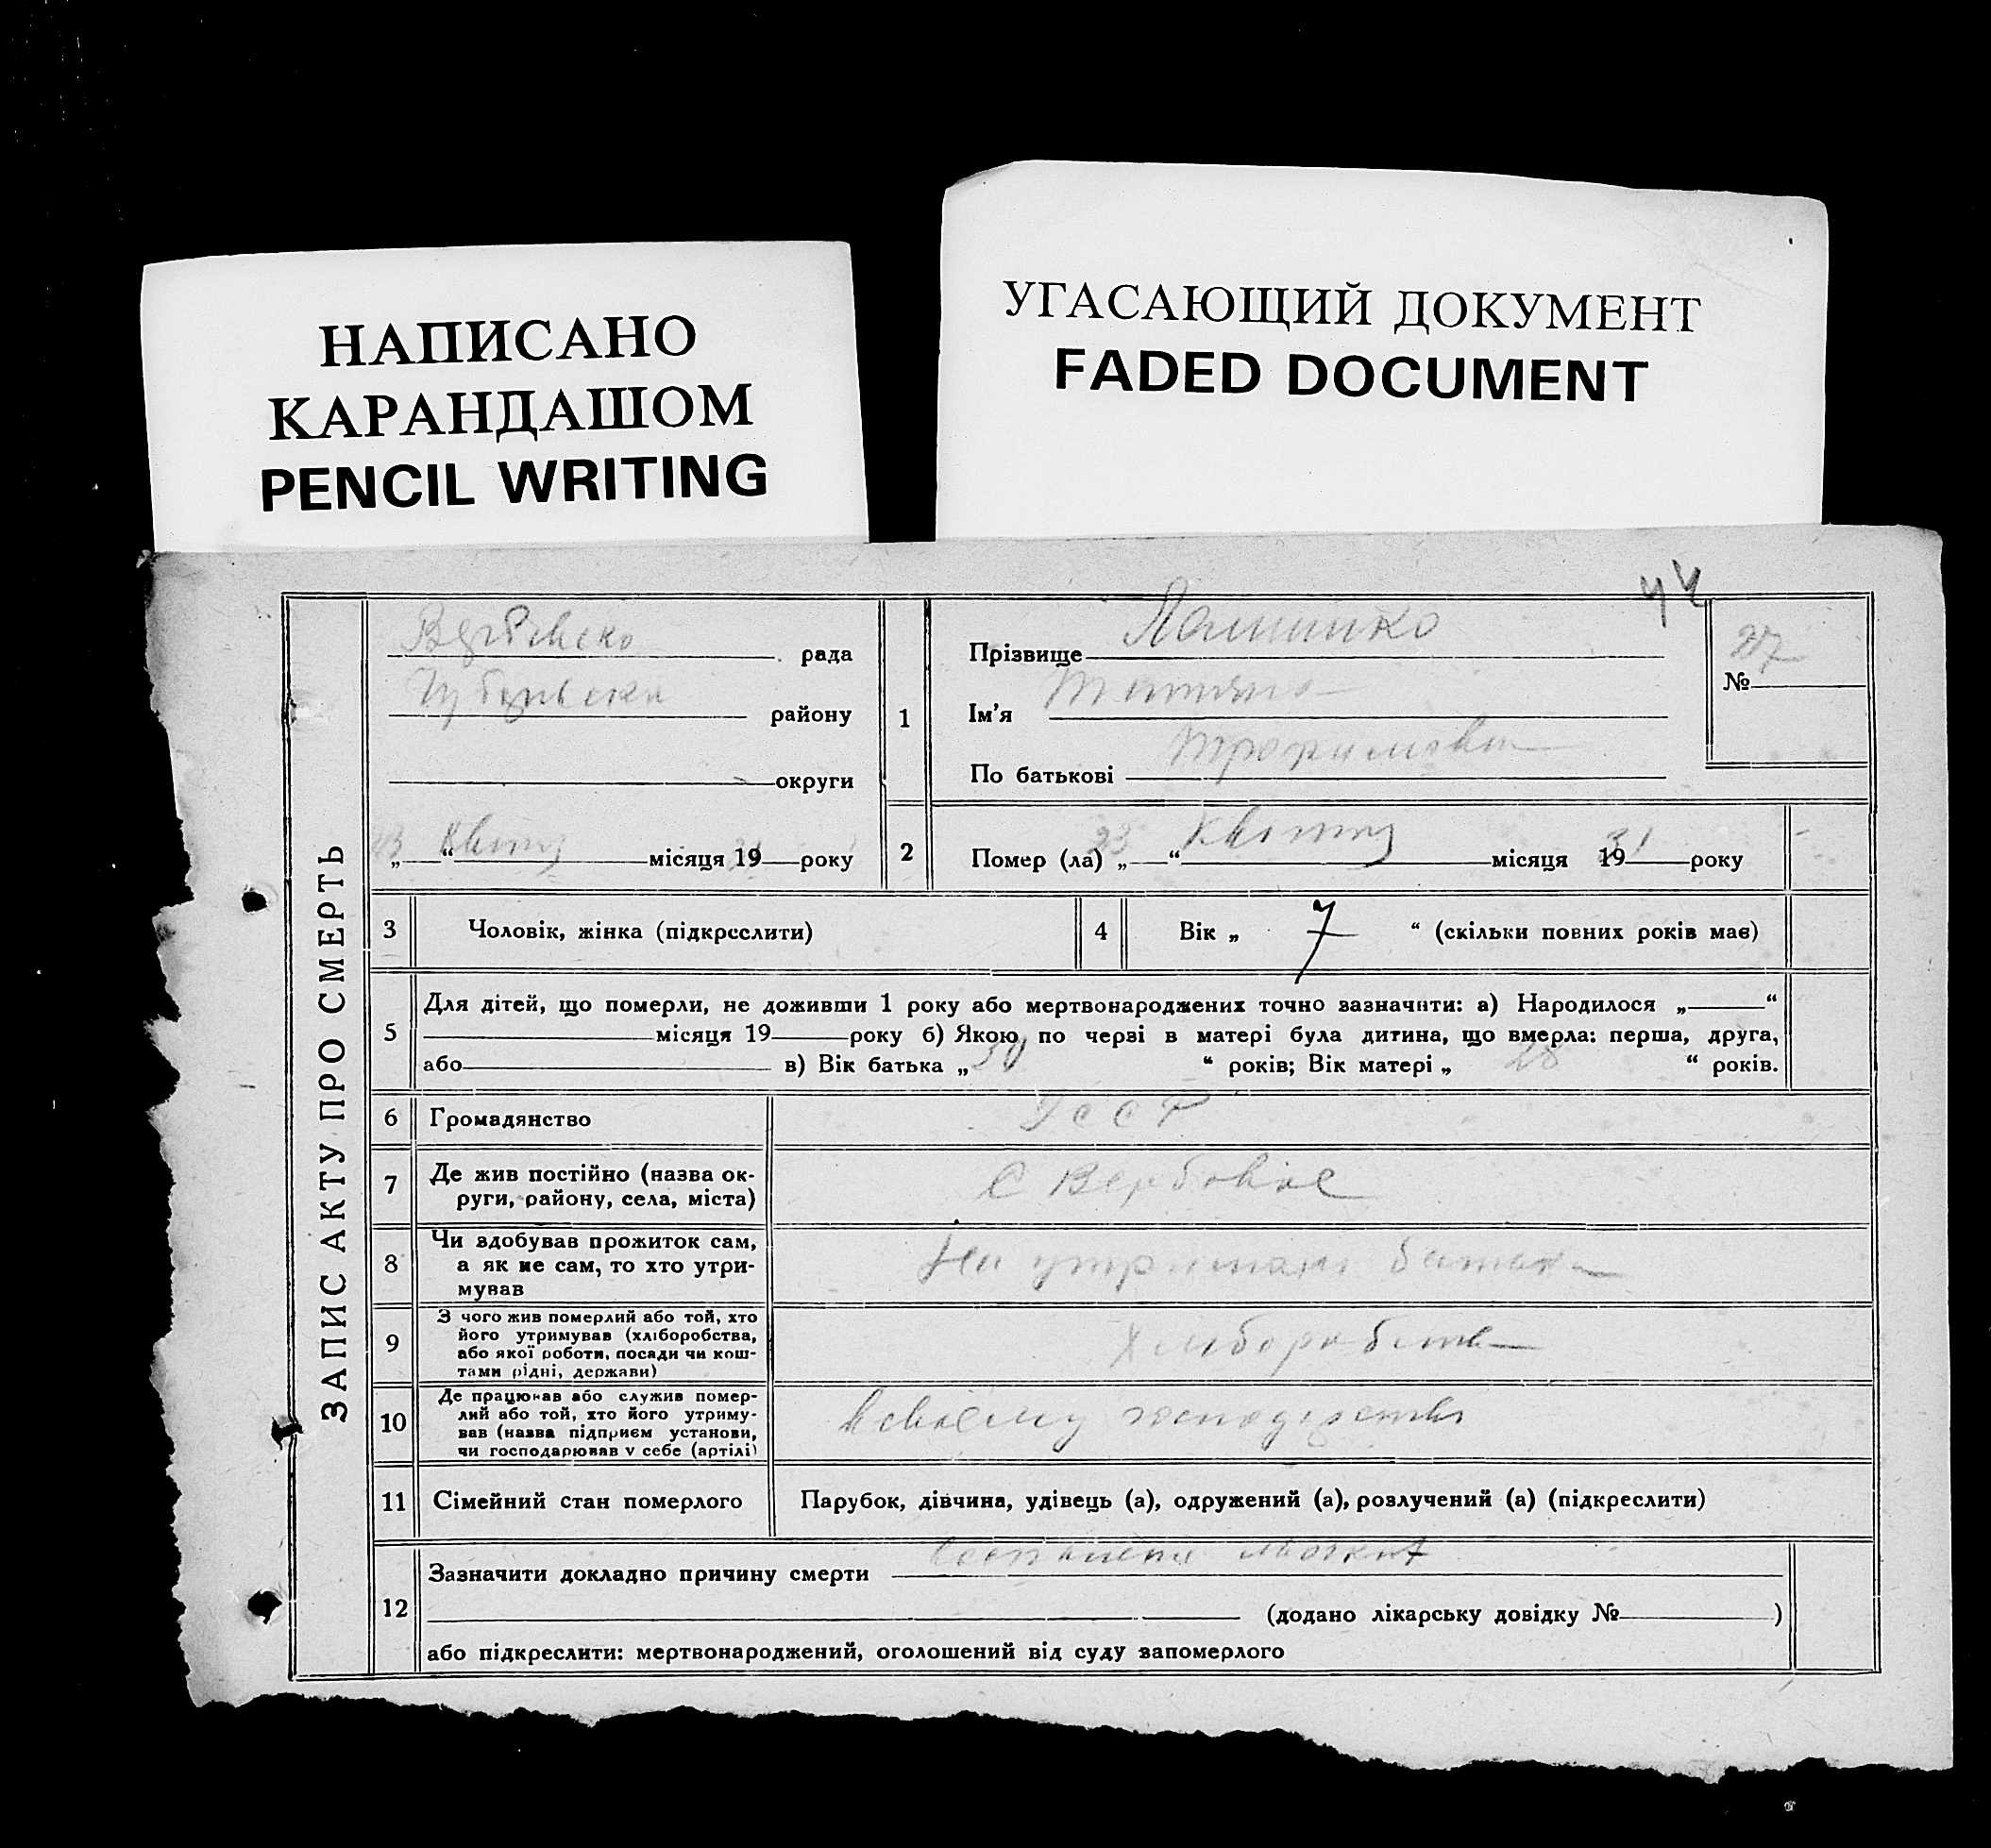 НАПИСАНО
КАРАНДАШОМ
PENCIL WRITING
УГАСАЮЩИЙ ДОКУМЕНТ
FADED DOCUMENT
ЗАПИС АКТУ ПРО СМЕРТЬ
рада
району
округи
„ “ місяця 19 року
1
Прізвище
Ім'я Татяна
По батькові Трофимовна
№ 27
2
Помер (ла) „ 23 “ місяця 19 31 року
3
Чоловік, жінка (підкреслити)
4
Вік „ 7 “ (скільки повних років має)
5
Для дітей, що померли, не доживши 1 року або мертвонароджених точно зазначити: а) Народилося „ “
місяця 19 року б) Якою по черві в матері була дитина, що вмерла: перша, друга,
або в) Вік батька „ 30 “ років; Вік матері „ 28 “ років.
6
Громадянство
7
Де жив постійно (назва ок-
руги, району, села, міста)
С
8
Чи здобував прожиток сам,
а як не сам, то хто утри-
мував
На батька
9
З чого жив померлий або той, хто
його утримував (хліборобства,
або якої роботи, посади чи кош-
тами рідні, держави)
10
Де працював або служив помер-
лий або той, хто його утриму-
вав (назва підприєм установи,
чи господарював у себе (артілі)
11
Сімейний стан померлого
Парубок, дівчина, удівець (а), одружений (а), розлучений (а) (підкреслити)
12
Зазначити докладно причину смерти
(додано лікарську довідку № )
або підкреслити: мертвонароджений, оголошений від суду запомерлого